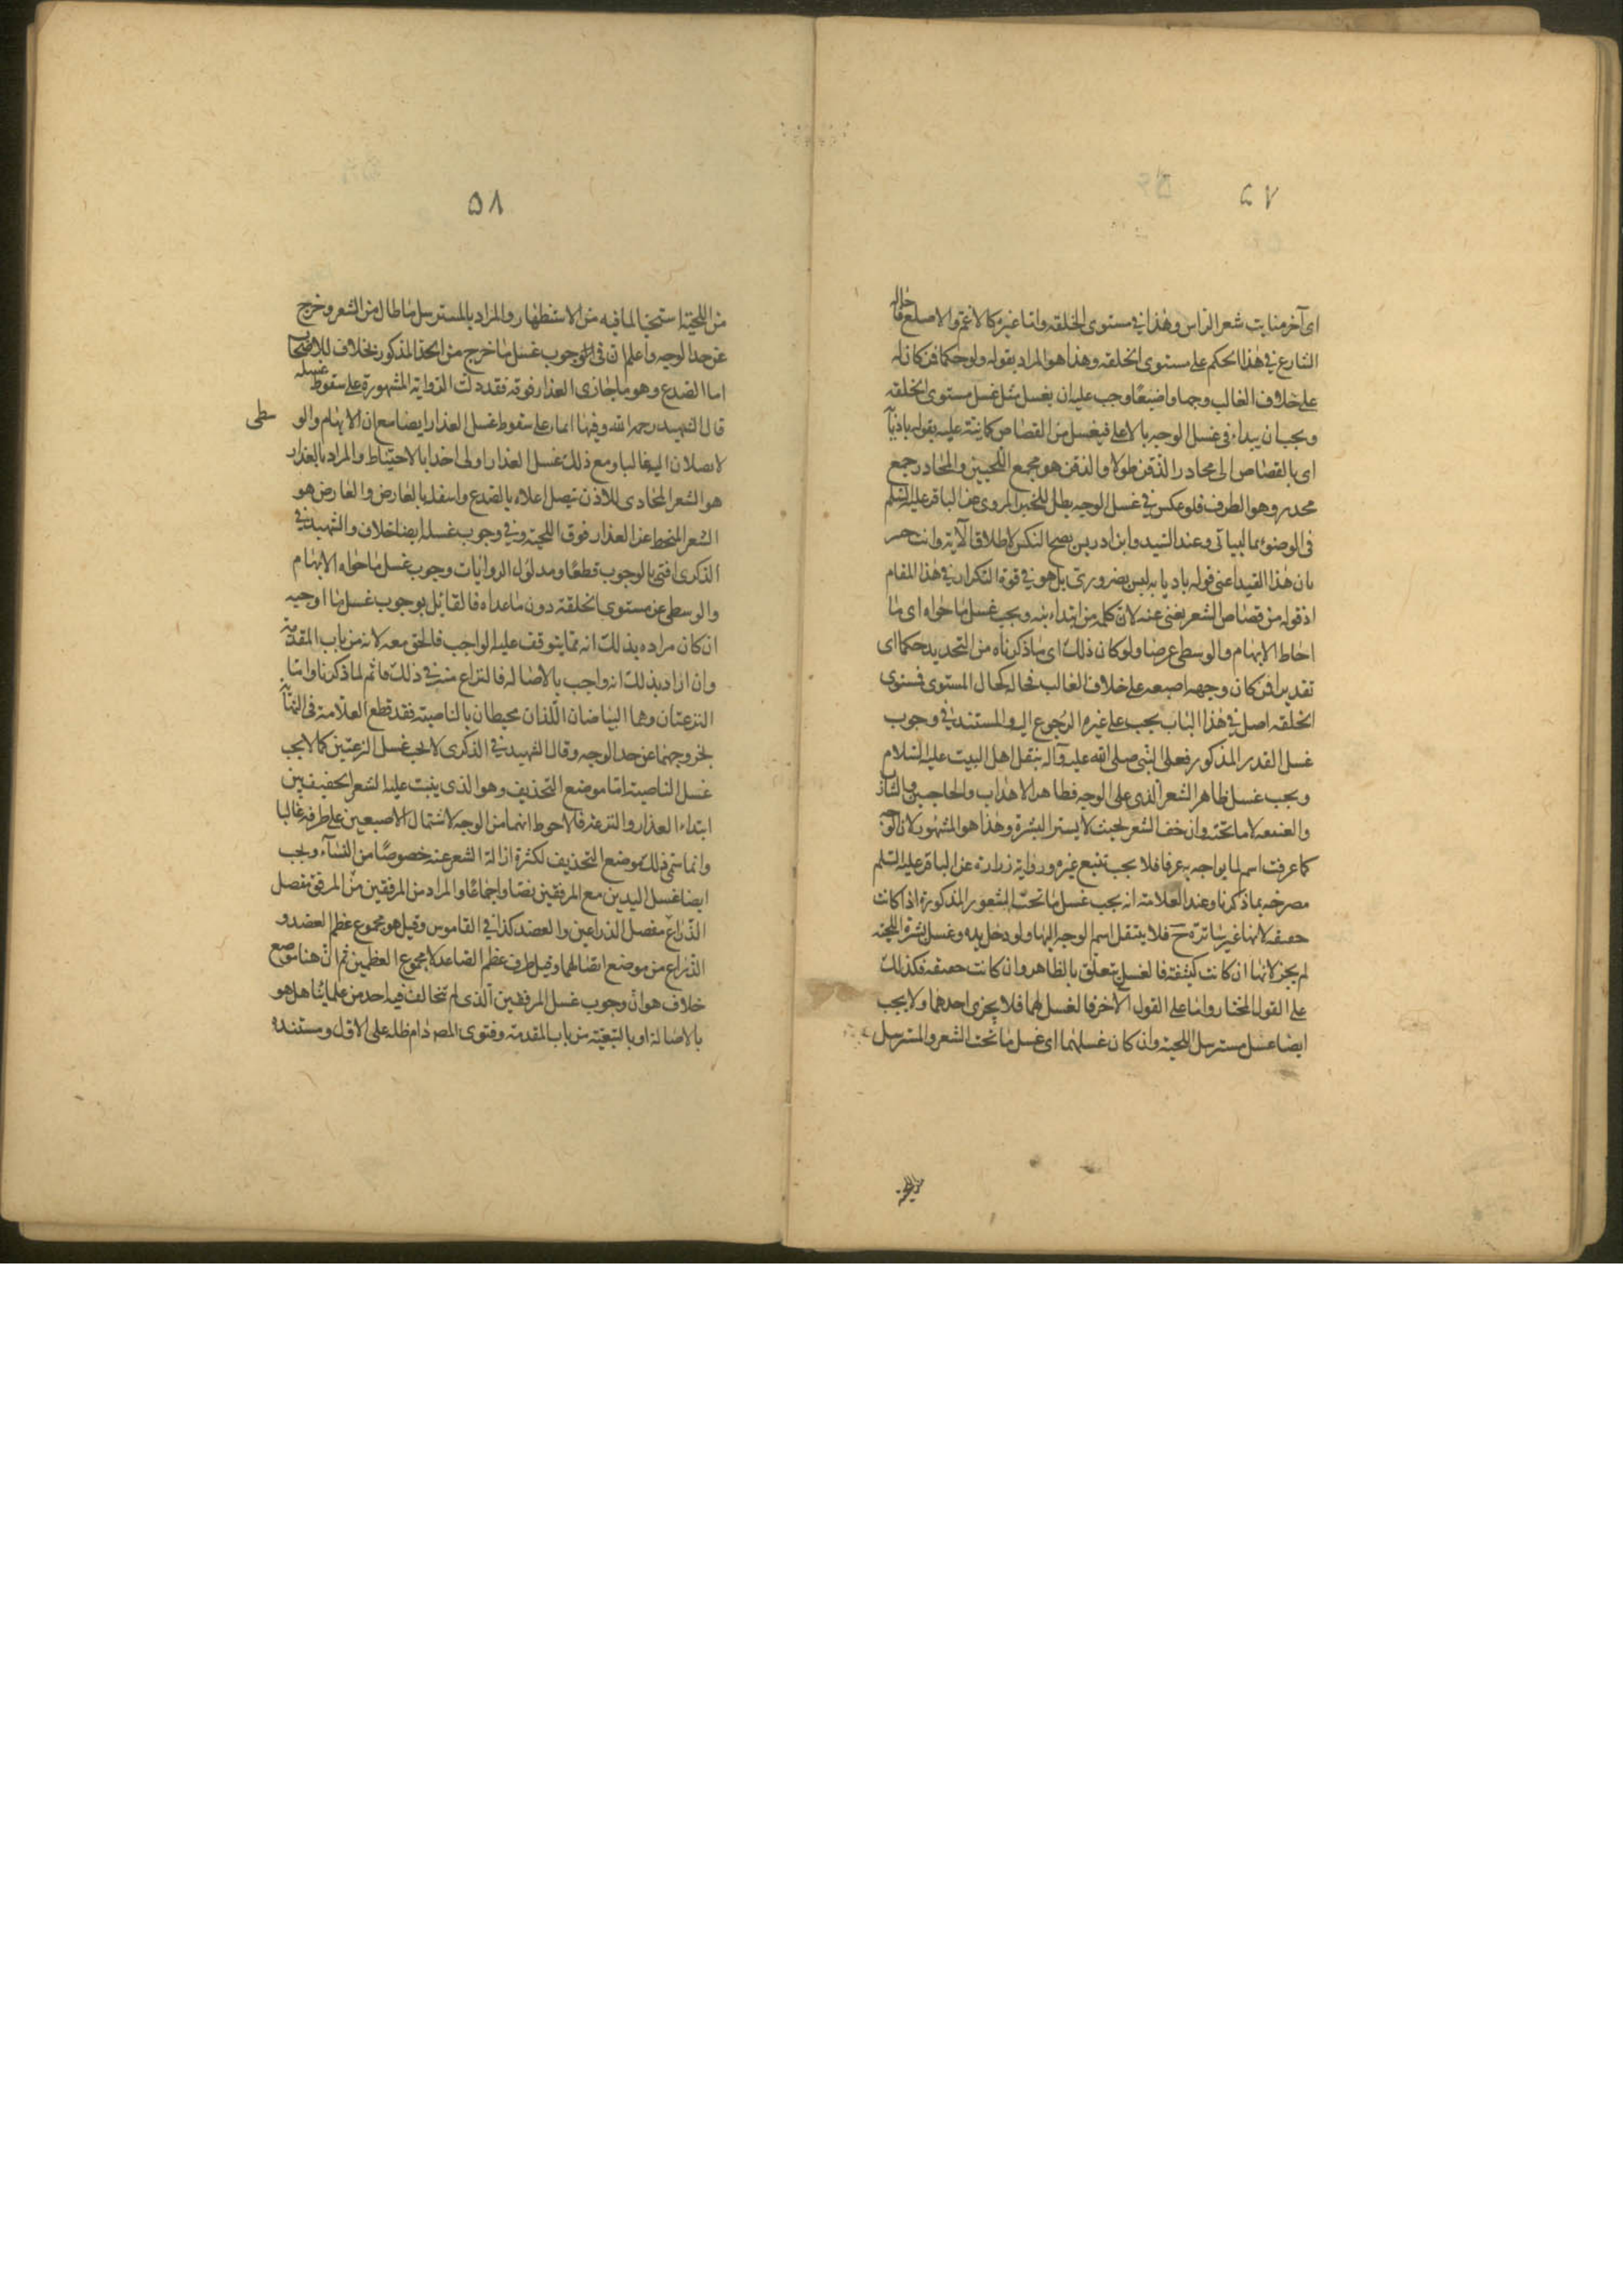 ٥٧
اى آخر منابت شعر الراس وهذا في مستوى الخلقه واما غيره كالاغم والاصلع فاحاله
الشارع في هذا الحكم على مستوى الخلقه وهذا هو المراد بقوله ولو حكما فمن كان له
على خلاف الغالب وجها واضبعا وجب عليه ان يغسل مثل غسل مستوى الخلقه
ويجب ان يبداء في غسل الوجه بالاعلى فيغسل من القصاص كما ينبه عليه بقوله بادئا
اى بالقصاص الى محادر الذقن طولا والذقن هو مجمع اللحيين والمحادر جمع
محدر وهو الطرف فلو عكس في غسل الوجه بطل للخبر المروى عن الباقر عليه السلم
فى الوضوء البيانى وعند السيد وابن ادريس يصح النكس لاطلاق الآية وانت خبير
بان هذا القيد اعنى قوله باديا به ليس بضرورى بل هو في قوة التكرار في هذا المقام
اذ قوله من قصاص الشعر يغنى عنه لان كلمه من ابتدائيه ويجب غسل ما حواه اى ما
احاط الابهام والوسطى عرضا ولو كان ذلك اى ما ذكرناه من التحديد حكما اى
تقديرا فمن كان وجهه اصبعه على خلاف الغالب فحاله كحال المستوى فمستوى
الخلقه اصل في هذا الباب يجب على غيره الرجوع اليه والمستند في وجوب
غسل القدر المذكور فعل النبى صلى الله عليه وآله بنقل اهل البيت عليه السلام
ويجب غسل ظاهر الشعر الذى على الوجه فظاهر الاهداب والحاجبين والشارب
والعنفقه لا ما تحته وان خف الشعر بحيث لا يستر البشرة وهذا هو المشهور لان الوجه
كما عرفت اسم لما يواجه به عرفا فلا يجب تتبع غيره ورواية زرارة عن الباقر عليه السلم
مصرحه بما ذكرنا وعند العلامة انه يجب غسل ما تحت الشعور المذكورة اذا كانت
خفيفه لانها غير ساترة ح فلا ينتقل اسم الوجه اليها ولو دخل يده وغسل بشرة اللحيه
لم يجز لانها ان كانت كثيفة فالغسل يتعلق بالظاهر وان كانت خفيفه فكذلك
على القول المختار واما على القول الآخر فالغسل لهما فلا يجزى احدهما ولا يجب
ايضا غسل مسترسل اللحية وان كان غسلهما اى غسل ما تحت الشعر والمسترسل
من اللحية
٥٨
من اللحية استحبابا لما فيه من الاستظهار والمراد بالمسترسل ما طال من الشعر وخرج
عن حد الوجه واعلم ان فى الوجوب غسل ما خرج من الحد المذكور بخلاف للاصحاب
اما الصدغ وهو ما يحاذى العذار فوقه فقد دلت الرواية المشهورة على سقوط غسله
قال الشهيد رحمه الله وفيها ايماء على سقوط غسل العذار ايضا مع ان الابهام والوسطى
لا يصلان اليه غالبا ومع ذلك غسل العذار اولى اخذا بالاحتياط والمراد بالعذار
هو الشعر المحاذى للاذن يتصل اعلاه بالصدغ واسفله بالعارض والعارض هو
الشعر المنحط عن العذار فوق اللحية وفي وجوب غسله ايضا خلاف والشهيد في
الذكرى افتى بالوجوب قطعا ومدلول الروايات وجوب غسل ما حواه الابهام
والوسطى عن مستوى الخلقة دون ما عداه فالقائل بوجوب غسل ما اوجبه
ان كان مراده بذلك انه مما يتوقف عليه الواجب فالحق معه لانه من باب المقدمة
وان اراد بذلك انه واجب بالاصالة فالنزاع منه في ذلك قائم لما ذكرنا واما
النزعتان وهما البياضان اللذان محيطان بالناصية فقد قطع العلامة فى النهاية
بخروجهما عن حد الوجه وقال الشهيد في الذكرى لا يجب غسل النزعتين كما لا يجب
غسل الناصية اما موضع التحذيف وهو الذى ينبت عليه الشعر الخفيف بين
ابتداء العذار والنزعة فالاحوط انهما من الوجه لاشتمال الاصبعين على طرفه غالبا
وانما سمى ذلك بموضع التحذيف لكثرة ازالة الشعر عنه خصوصا من النساء ويجب
ايضا غسل اليدين مع المرفقين نصا واجماعا والمراد من المرفقين من المرفق مفصل
الذراع مفصل الذراعين والعضد كذا في القاموس وقيل هو مجموع عظم العضد و
الذراع من موضع اتصالهما وقيل طرف عظم الساعد لا مجموع العظمين ثم ان هنا موضع
خلاف هو ان وجوب غسل المرفقين الذى لم يخالف فيه احد من علمائنا هل هو
بالاصالة او بالتبعية من باب المقدمة وفتوى المص دام ظله على الاول ومستنده